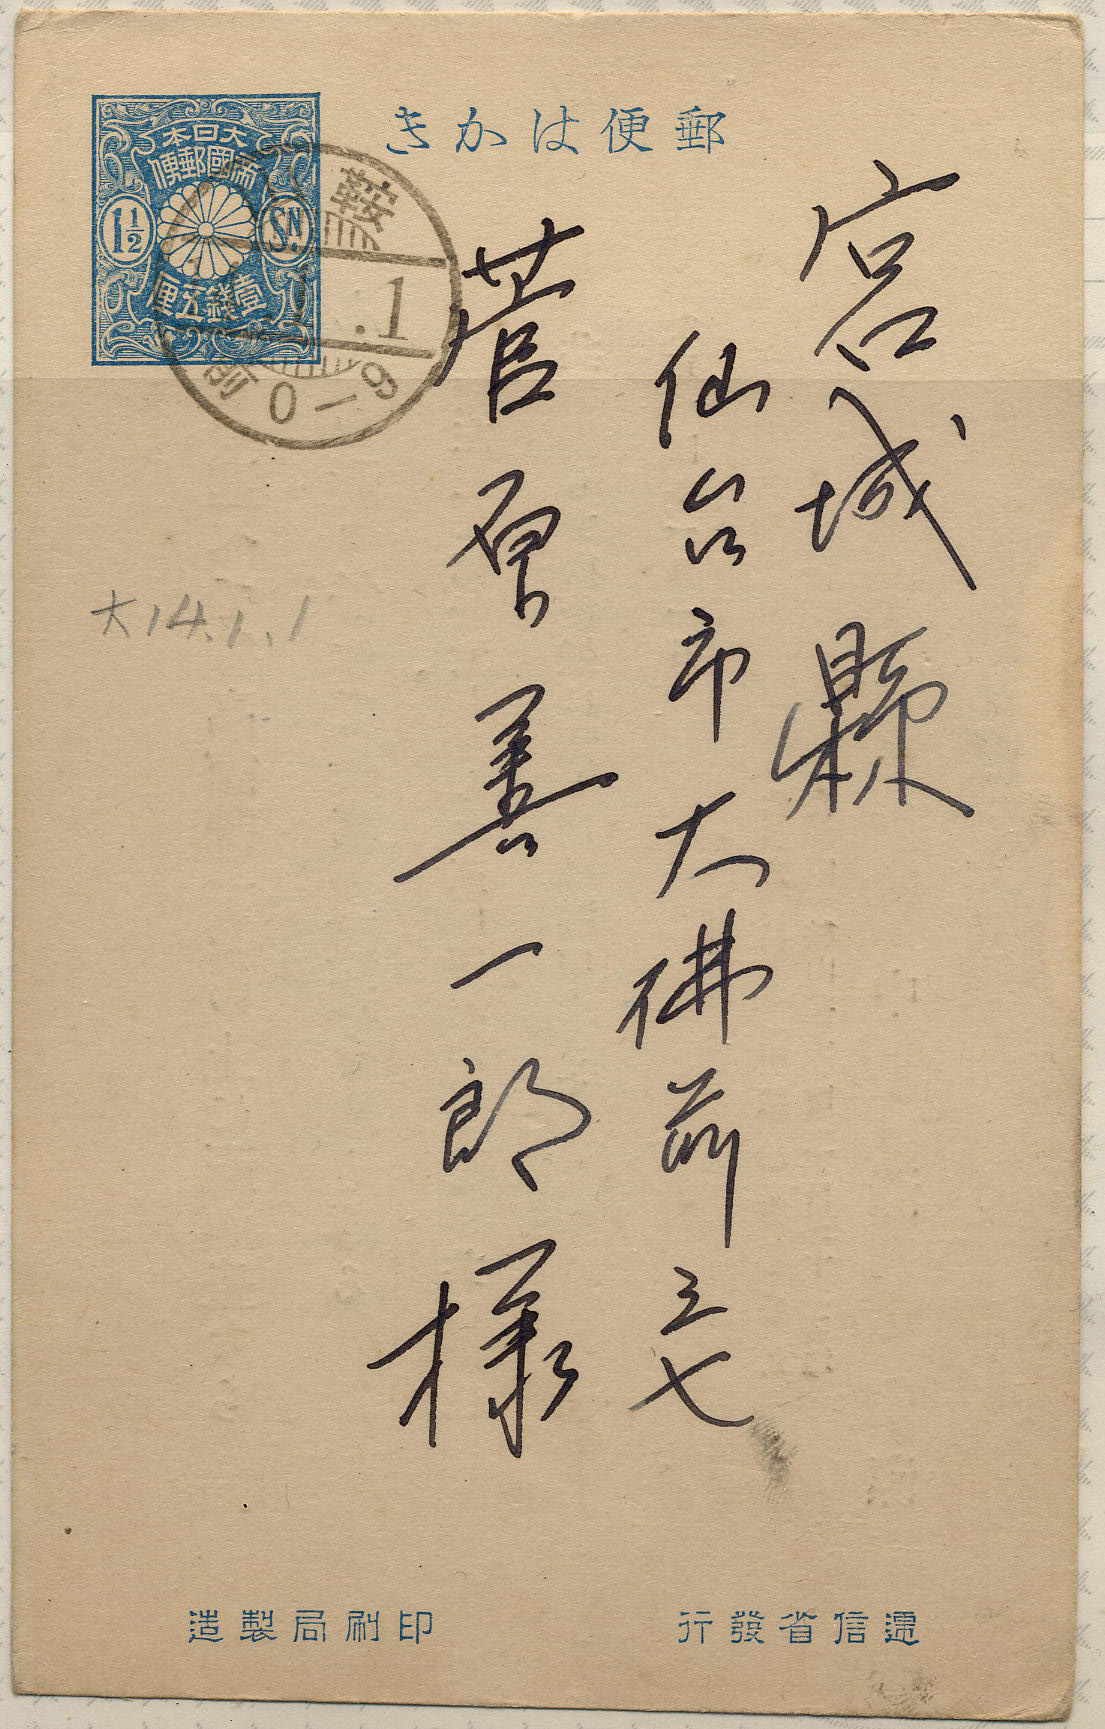 郵便はかき
大日本
帝國郵便
1½
SN.
壹錢五厘
鞍
.1.1
前0-9
宮城縣
仙台市大佛前三七
菅原善一郎様
大14.1.1
逓信省發行
印刷局製造